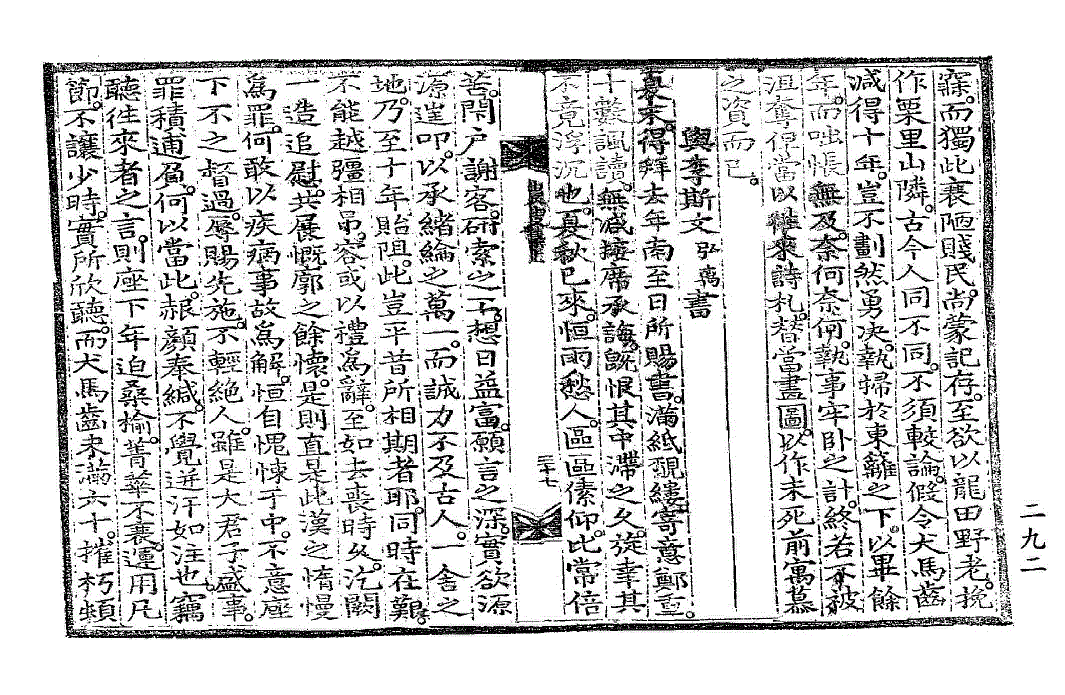 寐。而獨此衰陋賤民。尚蒙記存。至欲以龍田野老。挽
作栗里山隣。古今人同不同。不須較論。假令犬馬齒
減得十年。豈不劃然勇决。執掃於東籬之下。以畢餘
年。而咄悵無及。奈何奈何。執事牢卧之計。終若不被
沮奪。俾當以往來詩札。替當畫圖。以作未死前寓慕
之資而已。
與李斯文 弘离 書
裏末。得拜去年南至日所賜書。滿紙覶縷。寄意鄭重。
十數諷讀。無减接席承誨。旣恨其中滯之久。旋幸其
不竟浮沉也。夏秋已來。恒雨愁人。區區傃仰。比常倍
苦。閉户謝客。研索之工。想日益富。願言之深。實欲源
源造叩。以承緖綸之萬一。而誠力不及古人。一舍之
地。乃至十年貽阻。此豈平昔所相期者耶。同時在艱。
不能越疆相吊。容或以禮爲辭。至如去喪時久。迄闕
一造追慰。共展慨廓之餘懷。是則直是此漢之惰慢
爲罪。何敢以疾病事故爲解。恒自愧悚于中。不意座
下不之督過。辱賜先施。不輕絶人。雖是大君子盛事。
罪積逋負。何以當此。赧顔奉緘。不覺迸汗如注也。竊
聽往來者之言。則座下年迫桑楡。菁華不衰。運用凡
節。不讓少時。實所欣聽。而犬馬齒未滿六十。摧朽類
二十七
二九二